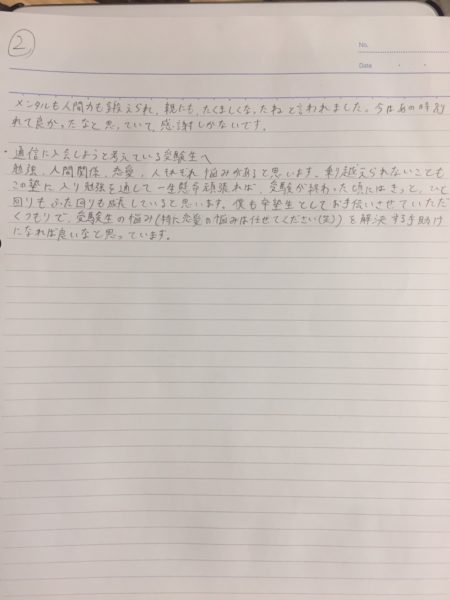 ②
No.
Date
メンタルも人間力も鍛えられ、親にも、たくましくなったねと言われました。今はあの時別
れて良かったなと思っていて、感謝しかないです。
・通信に入会しようと考えている受験生へ
勉強、人間関係、恋愛、人それぞれ悩みがあると思います。乗り越えられないことも
この塾に入り勉強を通して一生懸命頑張れば、受験が終わった頃にはきっと、ひと
回りもふた回りも成長していると思います。僕も卒塾生としてお手伝いさせていただ
くつもりで、受験生の悩み(特に恋愛の悩みは任せてください(笑))を解決する手助け
になれば良いなと思っています。